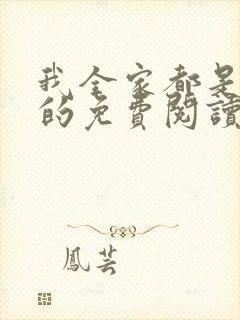 我全家都是
的免費閱讀
鳳芸